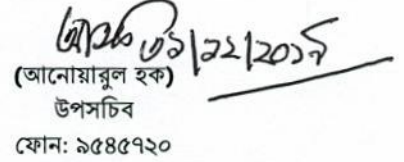 ৩১/১২/২০১৭
(আনোয়ারুল হক)
উপসচিব
ফোন: ৯৫৪৫৭২০